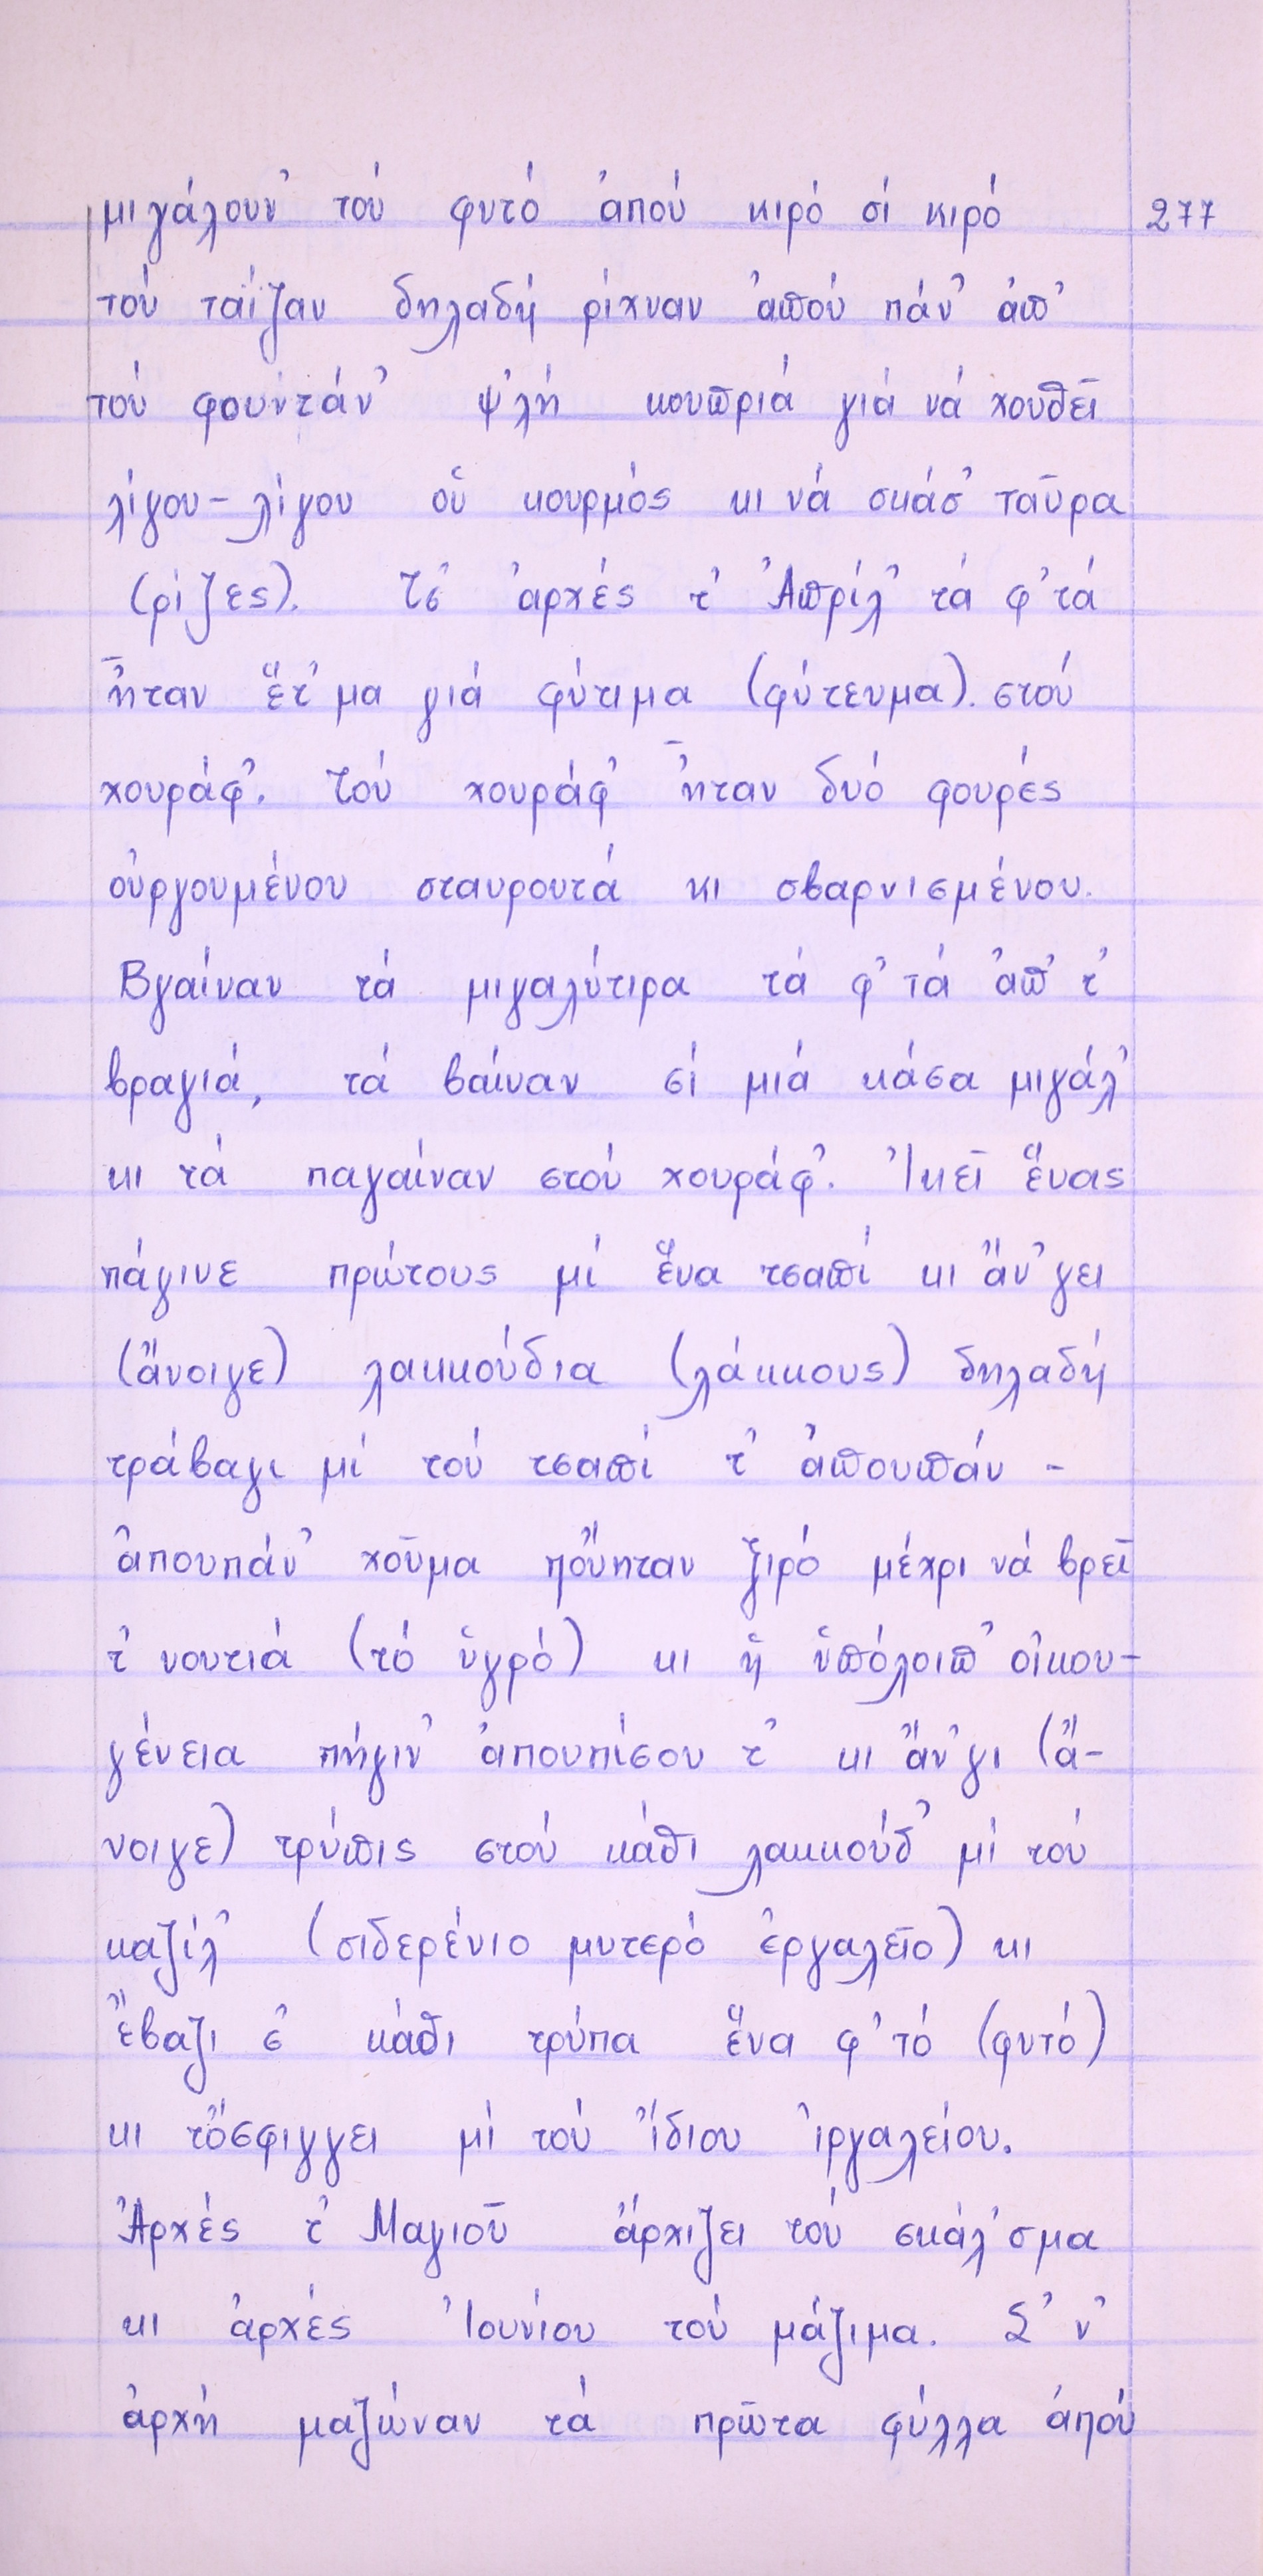 μιγάλουν᾿ τού φυτό ἀπού κιρό σί κιρό 277
τού ταΐζαν δηλαδή ρίχναν ἀπού πάν᾿ ἀπ᾿
τού φουντάν᾿ ψ᾿λή κουπριά γιά νά χουθεῖ
λίγου-λίγου οὑ κουρμός κι νά σκάσ᾿ ταῦρα
(ρίζες). Τσ᾿ ἀρχές τ᾿ Ἀπρίλ᾿ τά φ᾿τά
ἦταν ἕτ᾿μα γιά φύτιμα (φύτευμα). στού
χουράφ᾿. Τού χουράφ᾿ ἦταν δυό φουρές
οὐργουμένου σταυρουτά κι σβαρνισμένου.
Βγαίναν τά μιγαλύτιρα τά φ᾿τά ἀπ᾿ τ᾿
βραγιά, τά βαίναν σί μιά κάσα μιγάλ᾿
κι τά παγαίναν στού χουράφ᾿. Ἰκεῖ ἕνας
πάγινε πρώτους μί ἕνα τσαπί κι ἄν᾿γει
(ἄνοιγε) λακκούδια (λάκκους) δηλαδή
τράβαγι μί τού τσαπί τ᾿ ἀπουπάν -
ἀπουπάν᾿ χοῦμα ποὔηταν ξιρό μέχρι νά βρεῖ
τ᾿ νουτιά (τό ὑγρό) κι ἡ ὑπόλοιπ᾿ οἰκου-
γένεια πήγιν᾿ ἀπουπίσου τ᾿ κι ἄν᾿γι (ἄ-
νοιγε) τρύπις στού κάθι λακκούδ᾿ μί τού
καζίλ᾿ (σιδερένιο μυτερό ἐργαλεῖο) κι
ἔβαζι σ᾿ κάθι τρύπα ἕνα φ᾿τό (φυτό)
κι τὄσφιγγει μί τού ἴδιου ἰργαλείου.
Ἀρχές τ᾿ Μαγιοῦ ἄρχιζει τού σκάλ᾿σμα
κι ἀρχές Ἰουνίου τού μάζιμα. Σ᾿ ν᾿
ἀρχή μαζώναν τά πρῶτα φύλλα ἀπού